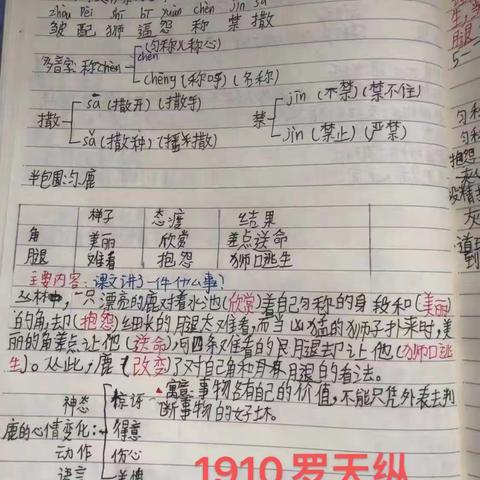 zhòu pèi shī bī yuàn chèn jīn sā
皱 配 狮 逼 怨 称 禁 撒
多音字 称 chèn (匀称)(称心)
chēng (称呼)(名称)
撒 sā (撒开)(撒手)
sǎ (撒种)
禁 jīn (不禁)(禁不住)
jìn (禁止)(严禁)
半包围:匀、鹿
样子 态度 结果
角 美丽 欣赏 差点送命
腿 难看 抱怨 狮口逃生
主要内容:课文讲了一件什么事?
丛林中,一只漂亮的鹿对着水池(欣赏)着自己匀称的身段和(美丽)
的角,却(抱怨)细长的腿太难看,而当凶猛的狮子扑来时,美
丽的角差点让他(送命),而四条难看的长腿却让他(狮口逃
生)。从此,鹿(改变)了对自己角和腿的看法。
寓意:事物各有自己的价值,不能只凭外表去判
断事物的好坏。
鹿的心情变化:
神态
动作
语言
惊讶
得意
伤心
1910 罗天纵